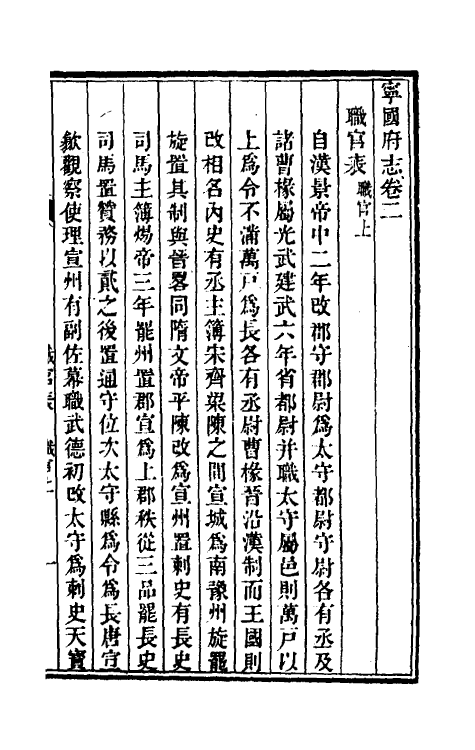 寧國府志卷二
職官表 職官上
自漢景帝中二年改郡守郡尉爲太守都尉守尉各有丞及
諸曹掾屬光武建武六年省都尉并職太守屬邑則萬戸以
上爲令不滿萬戸爲長各有丞尉曹掾晉沿漢制而王國則
改相名內史有丞主簿宋齊梁陳之間宣城爲南豫州旋罷
旋置其制與晉畧同隋文帝平陳改爲宣州置刺史有長史
司馬主簿煬帝三年罷州置郡宣爲上郡秩從三品罷長史
司馬置贊務以貳之後置通守位次太守縣爲令爲長唐宣
歙觀察使理宣州有副佐幕職武德初改太守爲刺史天寶
職官表 職官上 一